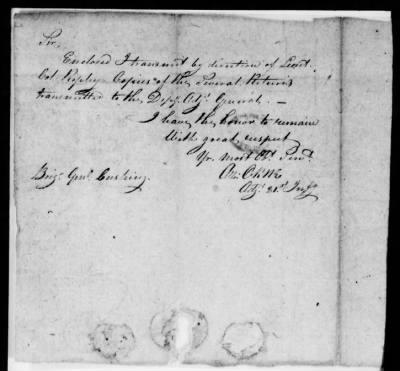 Sir,
Enclosed I transmit by direction of Lieut.
Col. Ripley Copies of the Several Returns
transmitted to the Depy. Adjt. General. —
I have the honor to remain
With great respect
Yr. Most Obt. Servt.
Adjt. 21st Infy
Brig. Genl. Cushing.